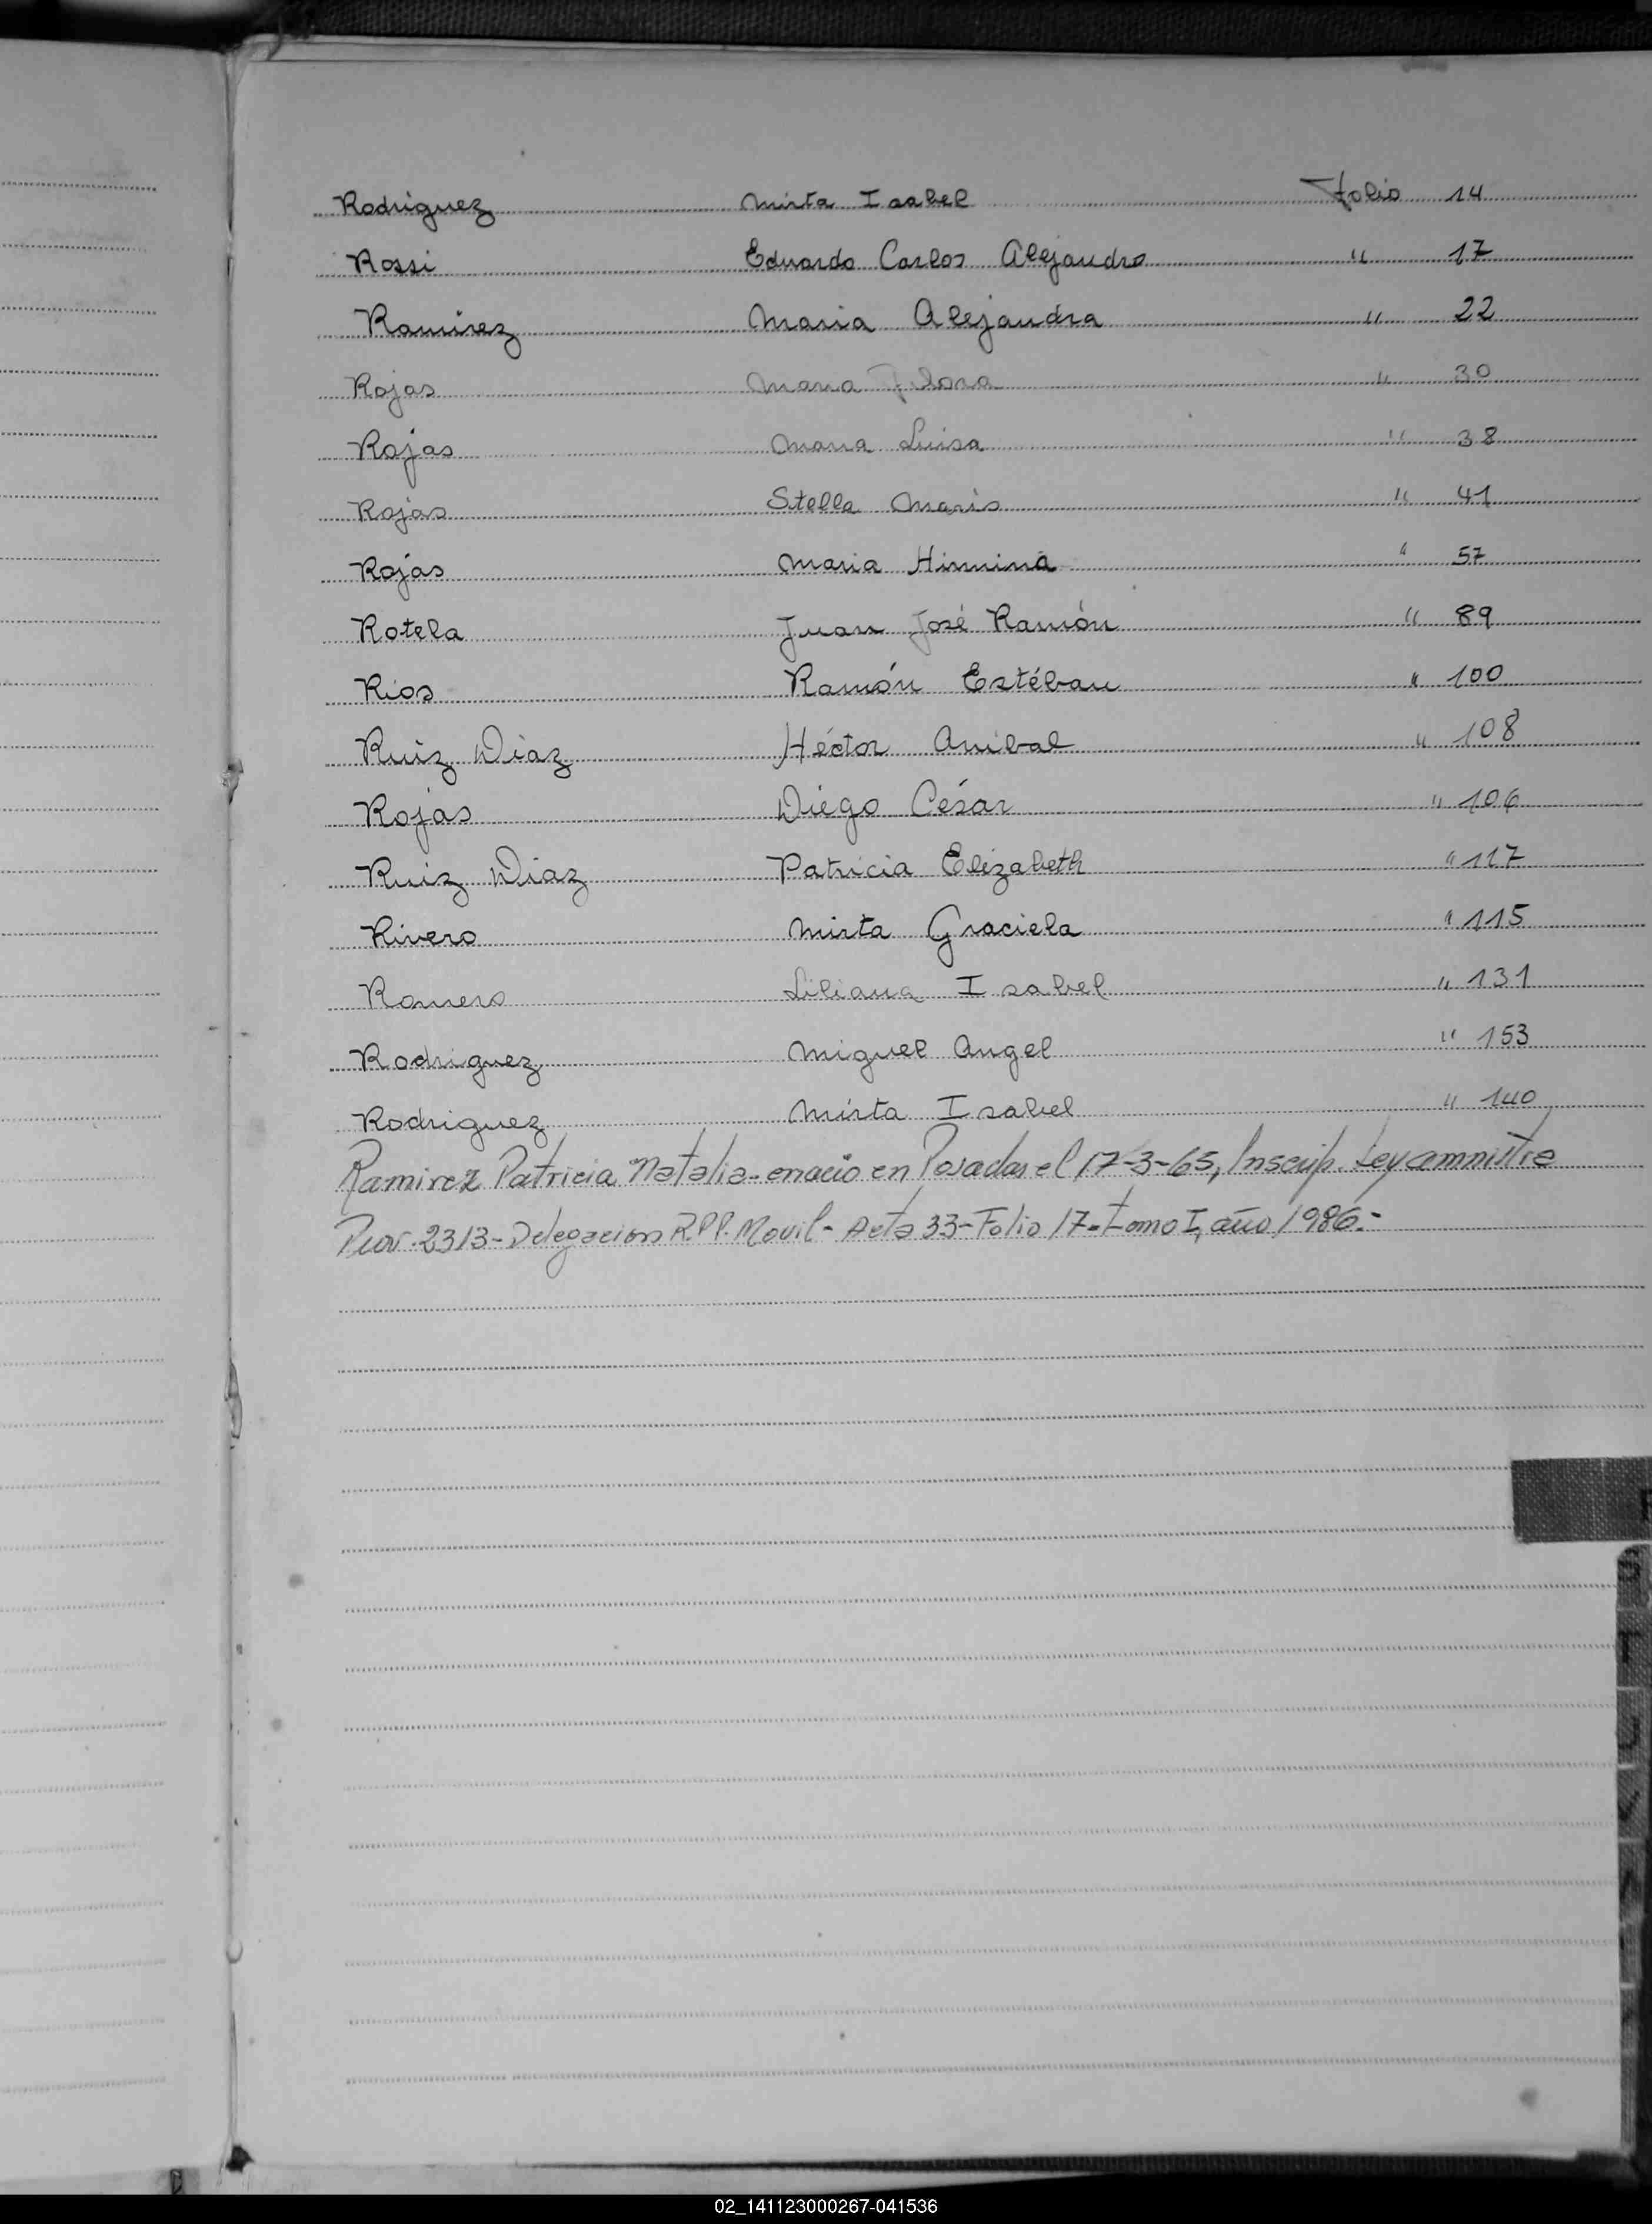 Rodriguez Mirta Isabel Folio 14
Rossi Eduardo Carlos Alejandro " 17
Ramirez Maria Alejandra " 22
Rojas Maria Flora " 30
Rojas Maria Luisa " 38
Rojas Stella Maris " 41
Rojas Maria Hirmina " 57
Rotela Juan José Ramón " 89
Rios Ramón Estéban " 100
Ruiz Diaz Héctor Anibal " 108
Rojas Diego César " 106
Ruiz Diaz Patricia Elizabeth " 117
Rivero Mirta Graciela " 115
Romero Liliana Isabel " 131
Rodriguez Miguel Angel " 153
Rodriguez Mirta Isabel " 140
Ramirez Patricia Natalia - en Posadas el 17-3-65, Inscrip. Ley amnistia
2313 - Delegacion R.PP. Movil - Acta 33 - Folio 17 - tomo I, año 1986.-
T
U
V
02_141123000267-041536